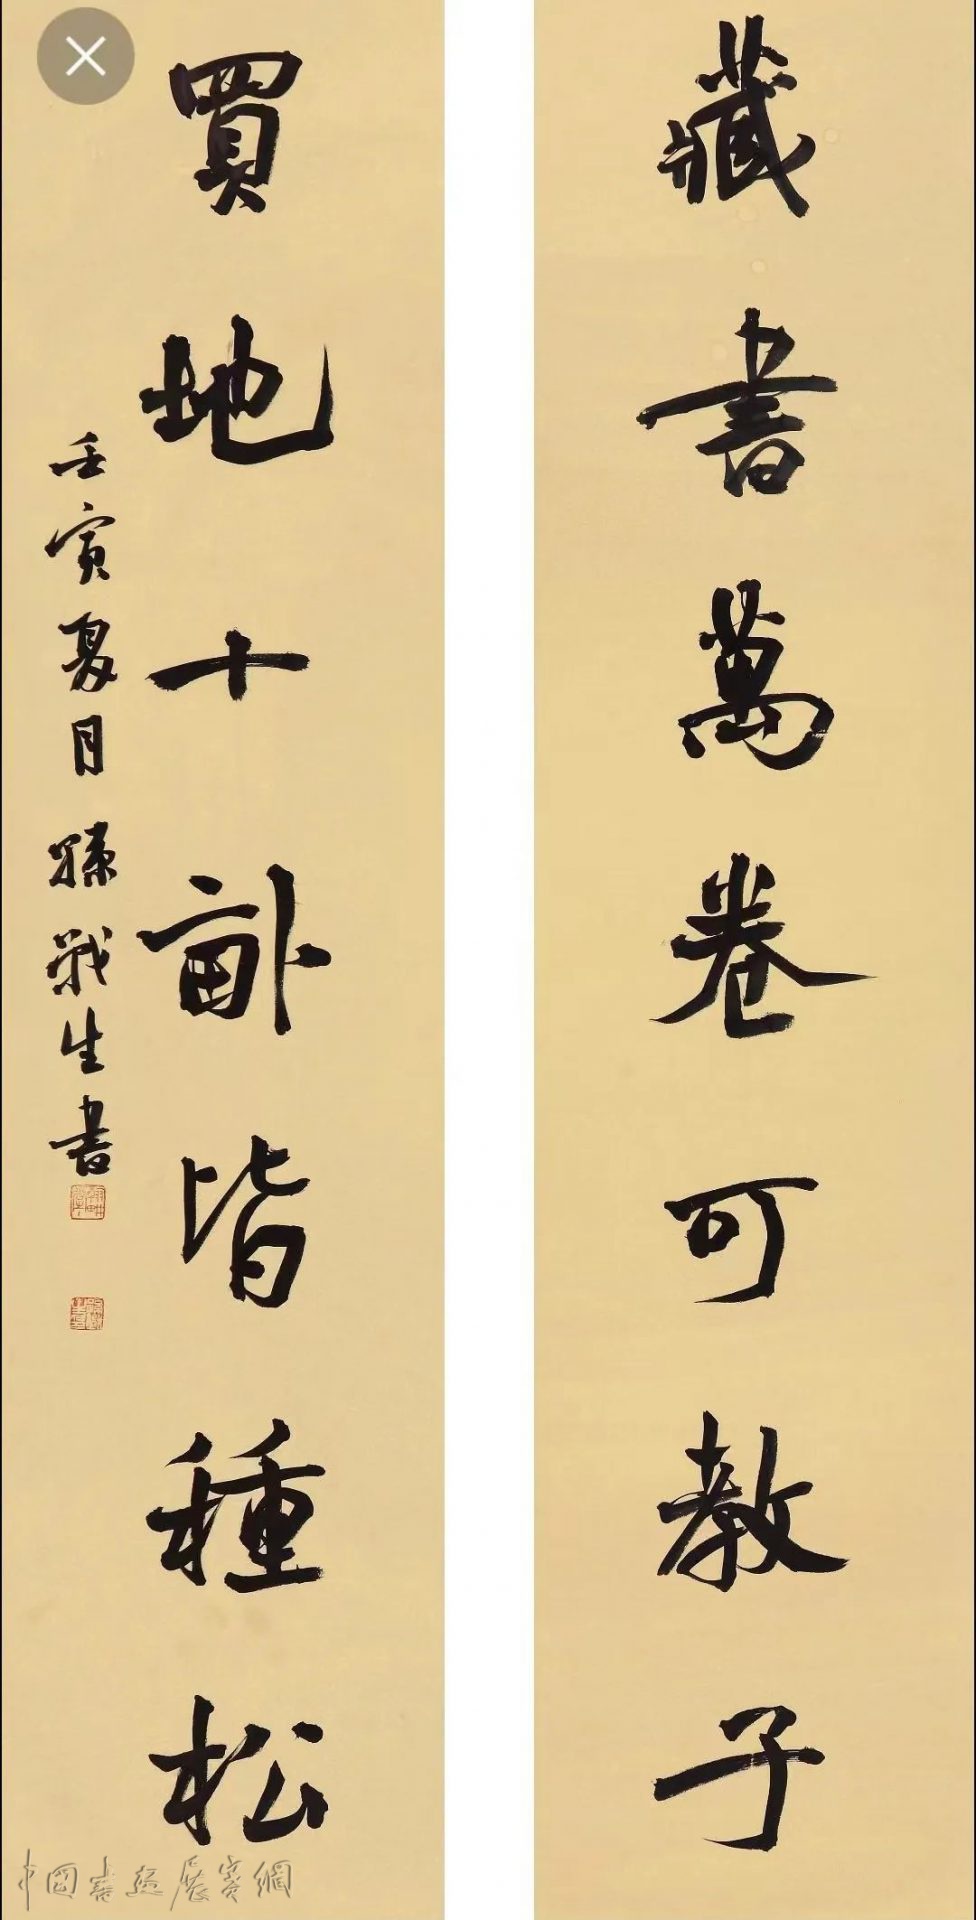 藏書萬卷可教子
買地十畝皆種松
壬寅夏月 孫戰生書
中國書畫展賽網